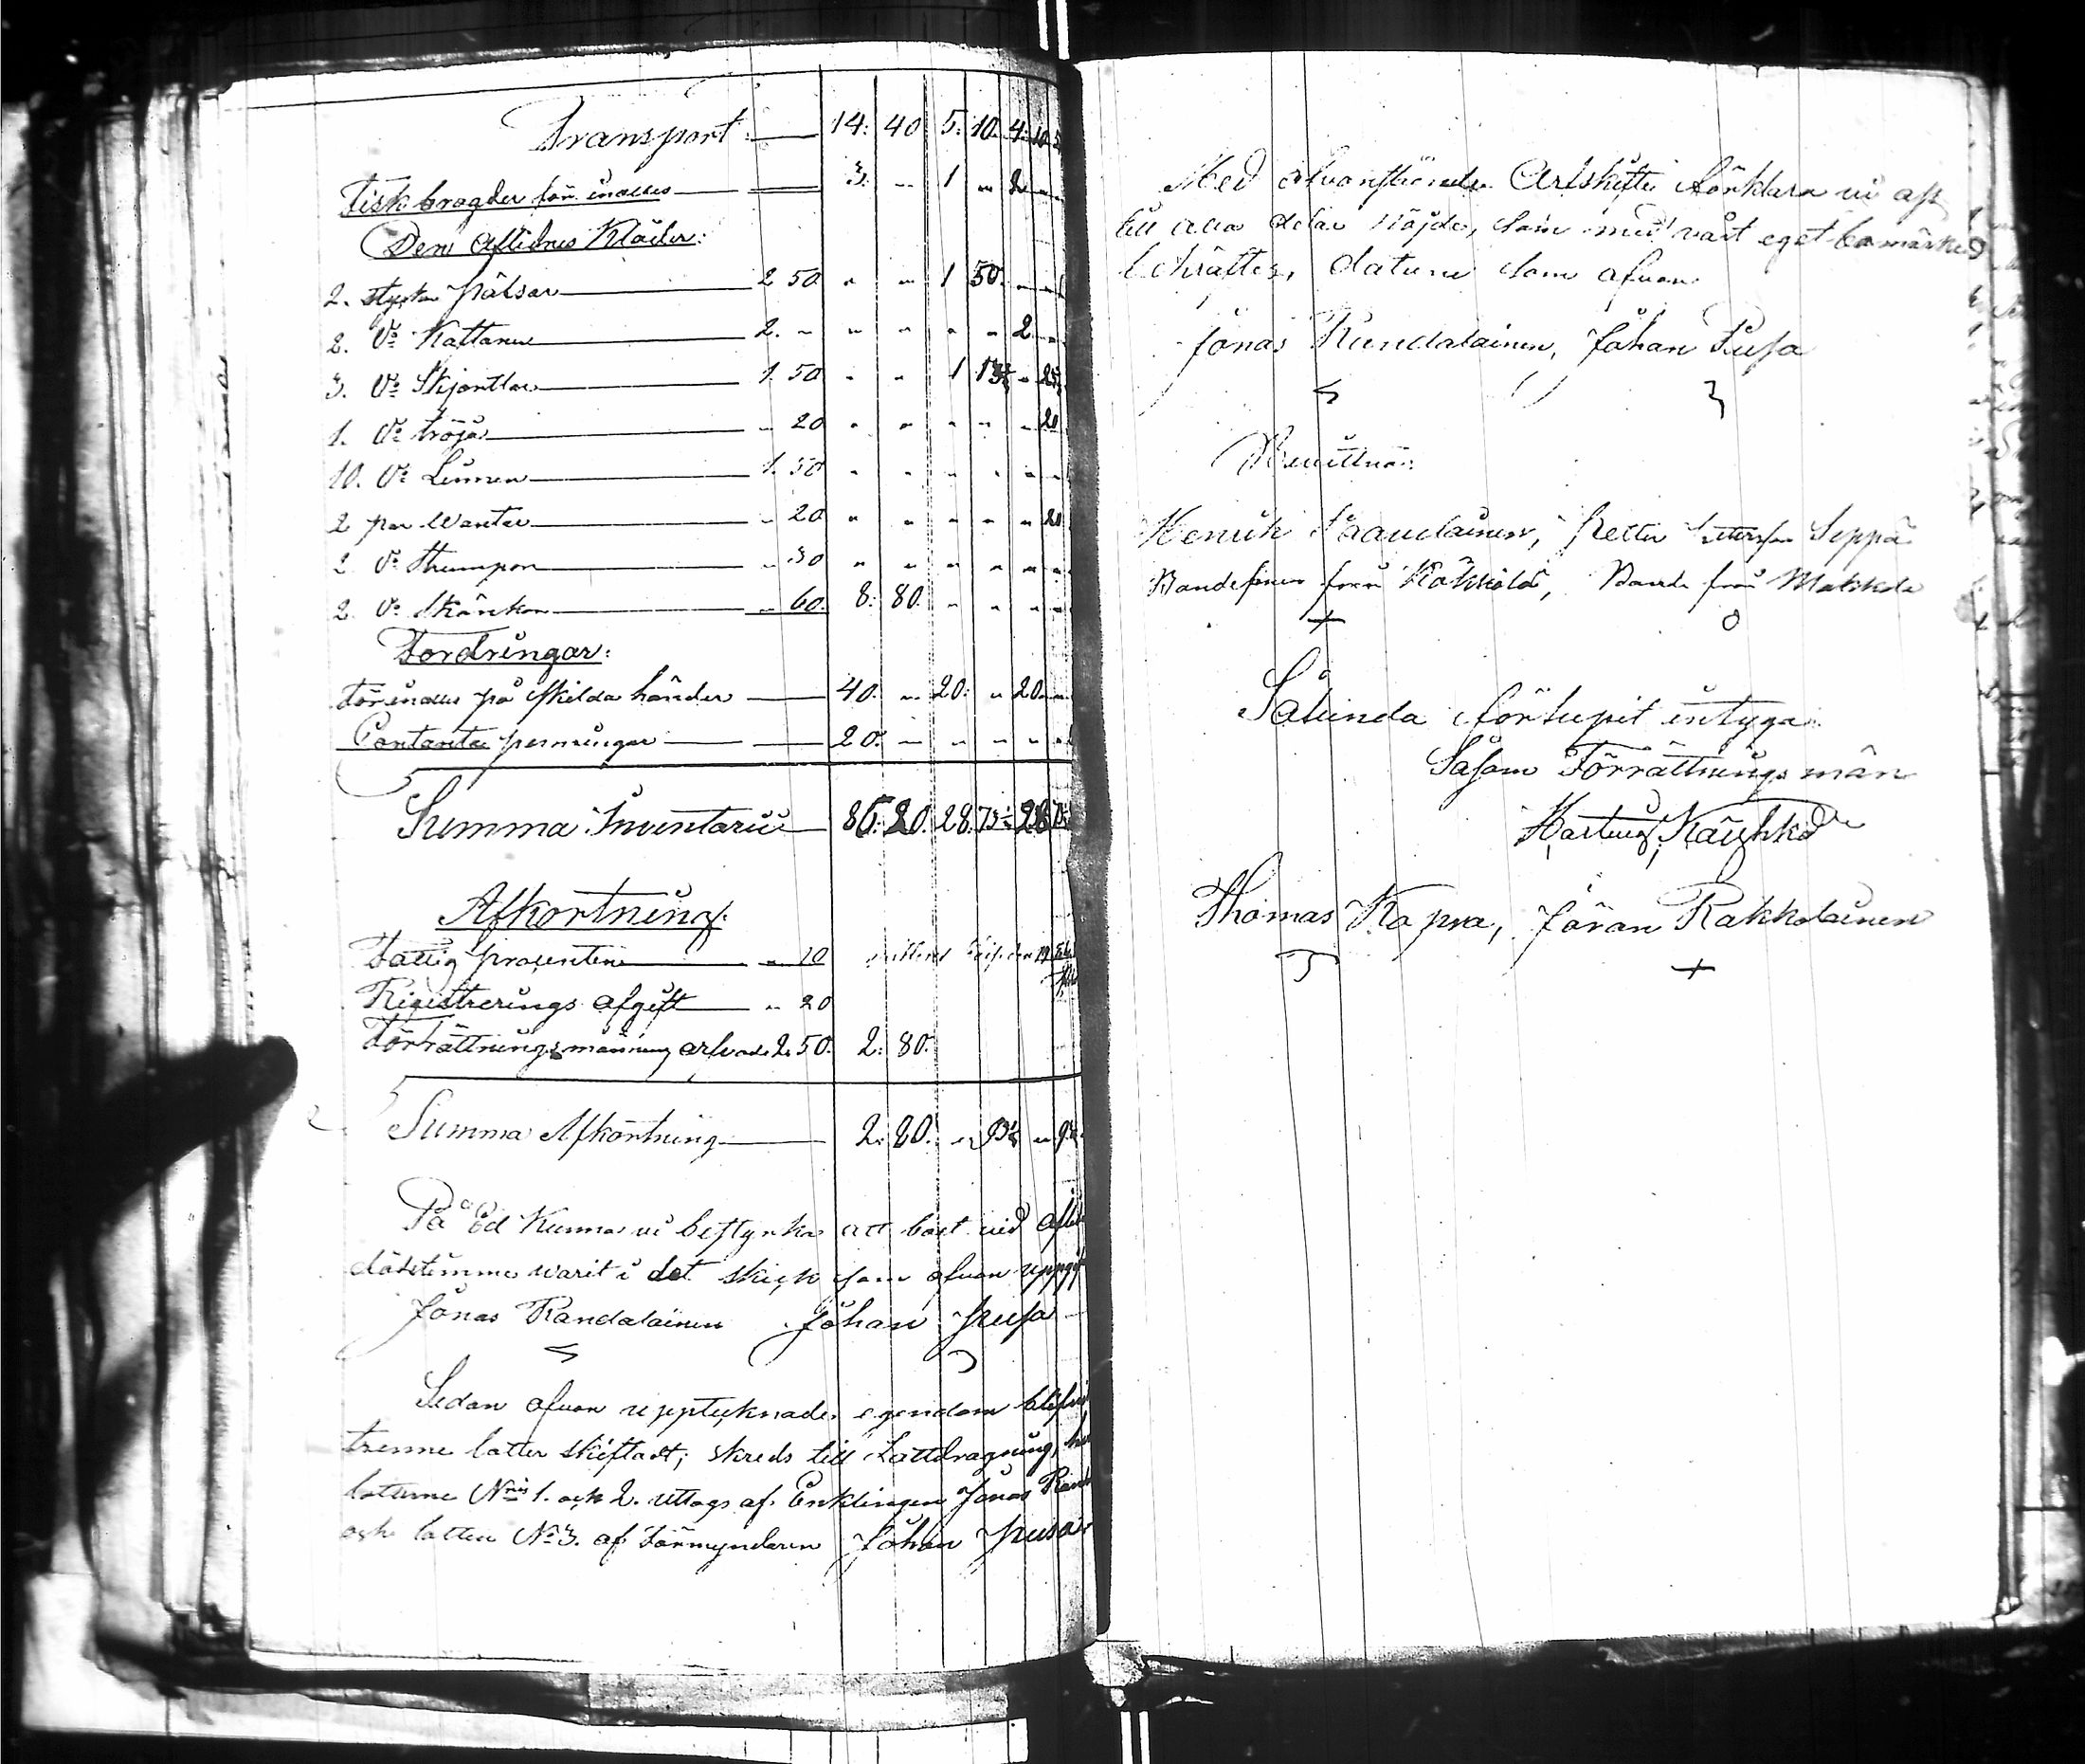 Transport 14. 40 5. 10. 4. 10
Fisk bragder för indlles 3. " 1 " 2 "
Den Aflidnes Kläder:
2. stycken Pälsar 2 50 " " 1 50 " "
2. Do Kattaner 2. " " " " " 2 "
3. Do Skjortlar 1. 50 " " 1 13 " 25
1. Do tröja " 20 " " " " " 20
10. Do Linnen 1. 50 " " " " " "
2 par Wantar " 20 " " " " " 20
2 Do Strumpor " 30 " " " " " "
2. Do Skänkor " 60. 8. 80. " " " "
Fordringar:
förindlles på skilda händer 40. " 20. " 20. "
Contanta penningar 20. " " " " "
Summa Inventarii 86. 20. 28. 73 28
Afkortning.
Fattig procenten " 10
Registrerings afgift " 20
Förrättningsmännens arfvode 2. 50. 2. 80.
Summa Afkortning 2. 80. " 93 "
På Ed Kunna vi bestyrka att boet vid aflid
dödstimme warit i det skick som ofvan uppgif
Jonas Randalainen Johan Pusa
Sedan ofvan upptecknade egendom blifvit
trenne lotter skiftadt; skreds till Lottdragning,
lotterne Nris 1. och 2. uttogs af Enklingen Jonas Rand
och lotten No 3. af Förmyndaren Johan Pusa
Med ofvanstående Arfskifte förklara vi oss
till alla delar nöjde, som med vårt eget bomärke
bekräftes, datum som ofvan.
Jonas Randalainen, Johan Pusa
Bevittna:
Henrik Petter Pettersson Seppä
Bondeson från Bonde från
Sålunda förlupit intyga:
Såsom Förrättningsmän
Hartwig
Thomas Kapra, Jöran Rakkolainen